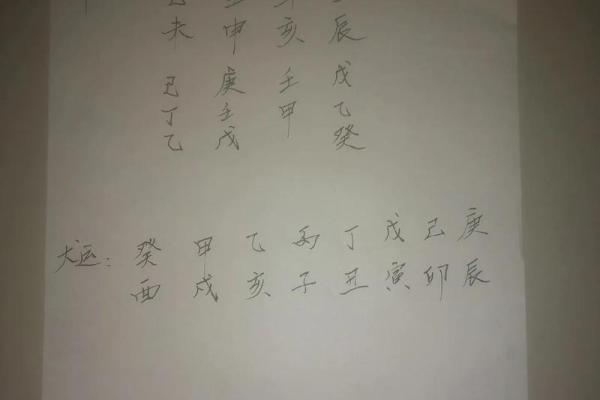 未 申 亥 辰
己 庚 壬 戊
丁 壬 甲 乙
乙 戊 癸
大运: 癸 甲 乙 丙 丁 戊 己 庚
酉 戌 亥 子 丑 寅 卯 辰